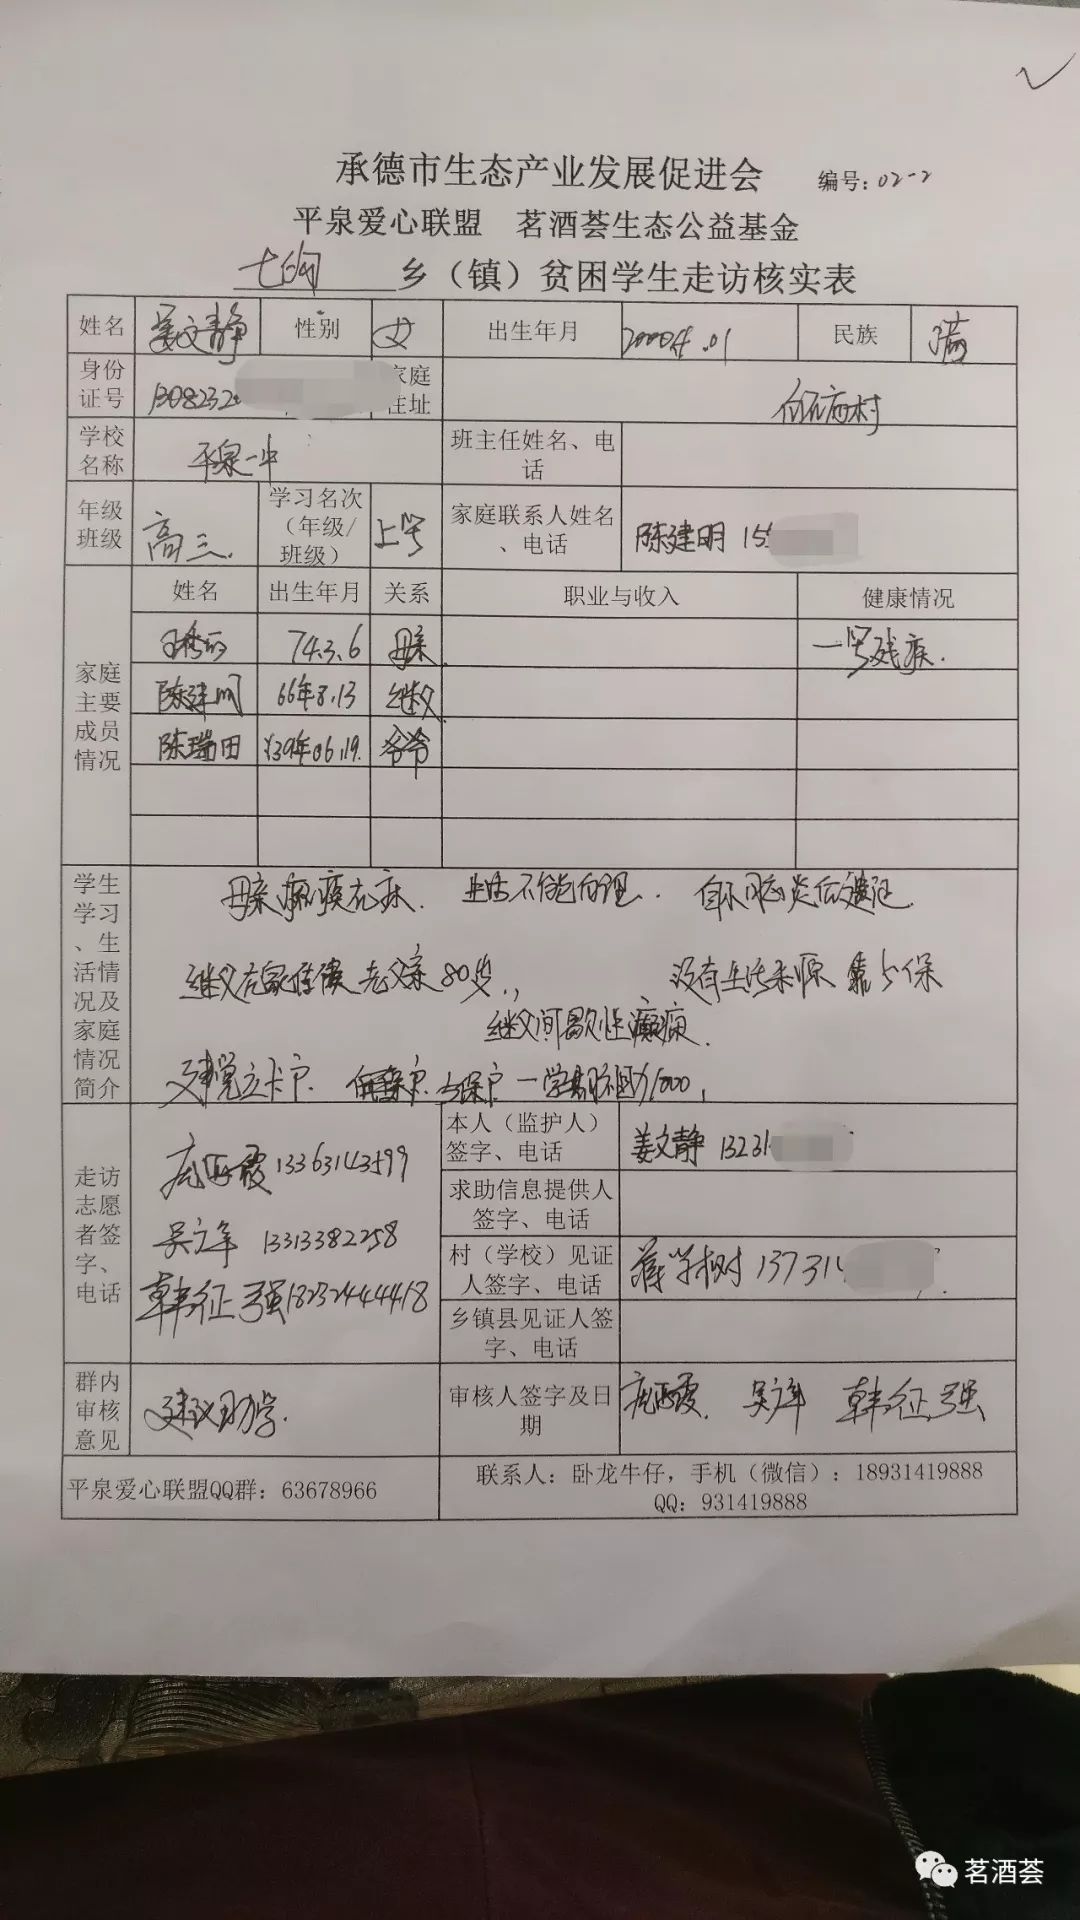 承德市生态产业发展促进会 编号：02-2
平泉爱心联盟 茗酒荟生态公益基金
七沟 乡（镇）贫困学生走访核实表
姓名 姜文静 性别 女 出生年月 2000年.01 民族 满
身份证号 1308232 家庭住址
学校名称 平泉一中 班主任姓名、电话
年级班级 高三. 学习名次（年级/班级） 上等 家庭联系人姓名、电话 陈建明 15
家庭主要成员情况
姓名 出生年月 关系 职业与收入 健康情况
74.3.6 母亲 一等残疾.
陈建明 66年8.13 继父
陈瑞田 39年06.19. 爷爷
学生学习、生活情况及家庭情况简介
母亲 瘫痪在床. 生活不能自理. 后遗症.
继父在家 老父亲80岁., 没有生活来源 靠低保
继父间歇性癫痫.
建党立卡户. 低保户 一学期 1000,
走访志愿者签字、电话
13363143599
吴立军 13313382258
韩征强18232444418
本人（监护人）签字、电话 姜文静 13231
求助信息提供人签字、电话
村（学校）见证人签字、电话 蒋学树 13731
乡镇县见证人签字、电话
群内审核意见 建议助学.
审核人签字及日期 吴立军 韩征强
平泉爱心联盟QQ群：63678966
联系人：卧龙牛仔，手机（微信）：18931419888
QQ：931419888
茗酒荟